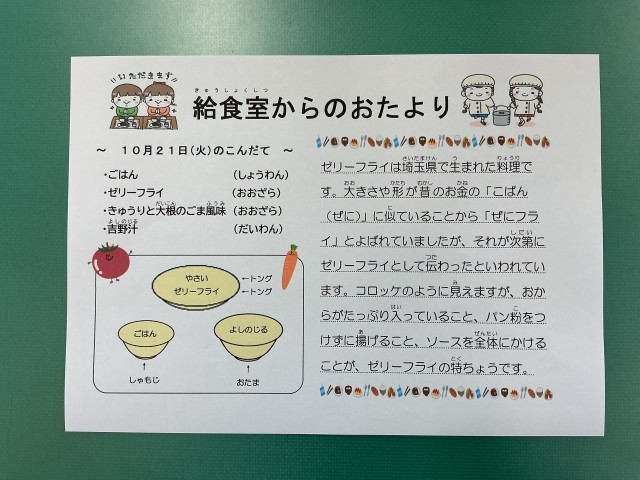 いただきます
給食室からのおたより
～ 10月21日(火)のこんだて ～
・ごはん （しょうわん）
・ゼリーフライ （おおざら）
・きゅうりと大根のごま風味 （おおざら）
・吉野汁 （だいわん）
やさい ←トング
ゼリーフライ ←トング
ごはん
よしのじる
しゃもじ
おたま
ゼリーフライは埼玉県で生まれた料理で
す。大きさや形が昔のお金の「こばん
（ぜに）」に似ていることから「ぜにフラ
イ」とよばれていましたが、それが次第に
ゼリーフライとして伝わったといわれてい
ます。コロッケのように見えますが、おか
らがたっぷり入っていること、パン粉をつ
けずに揚げること、ソースを全体にかける
ことが、ゼリーフライの特ちょうです。